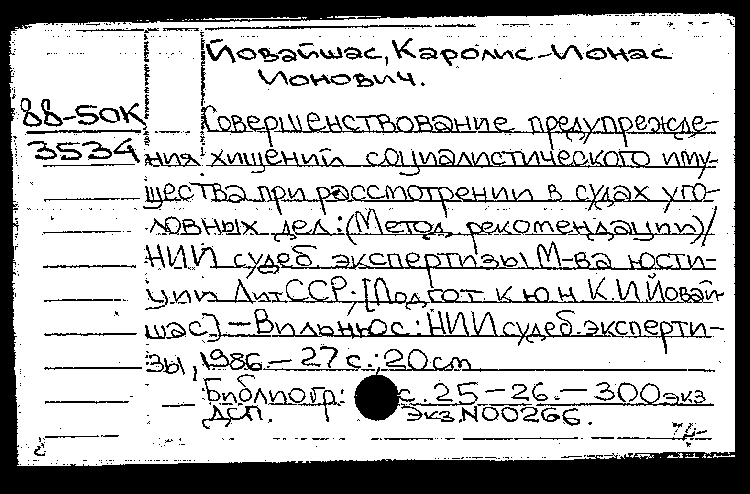 Йовайшас, Каролис-Ионас
Ионович.
88-50К
3534
Совершенствование предупрежде-
ния хищений социалистического иму-
щества при рассмотрении в судах уго-
ловных дел: (Метод. рекомендации)/
НИИ судеб. экспертизы М-ва юсти-
ции ЛитССР; [Подгот. к ю н К. И Йовай-
шас] — Вильнюс: НИИ судеб. эксперти-
зы, 1986 — 27 с.; 20 см
Библиогр: с. 25 — 26. — 300 экз
ДСП. Экз. N00266.